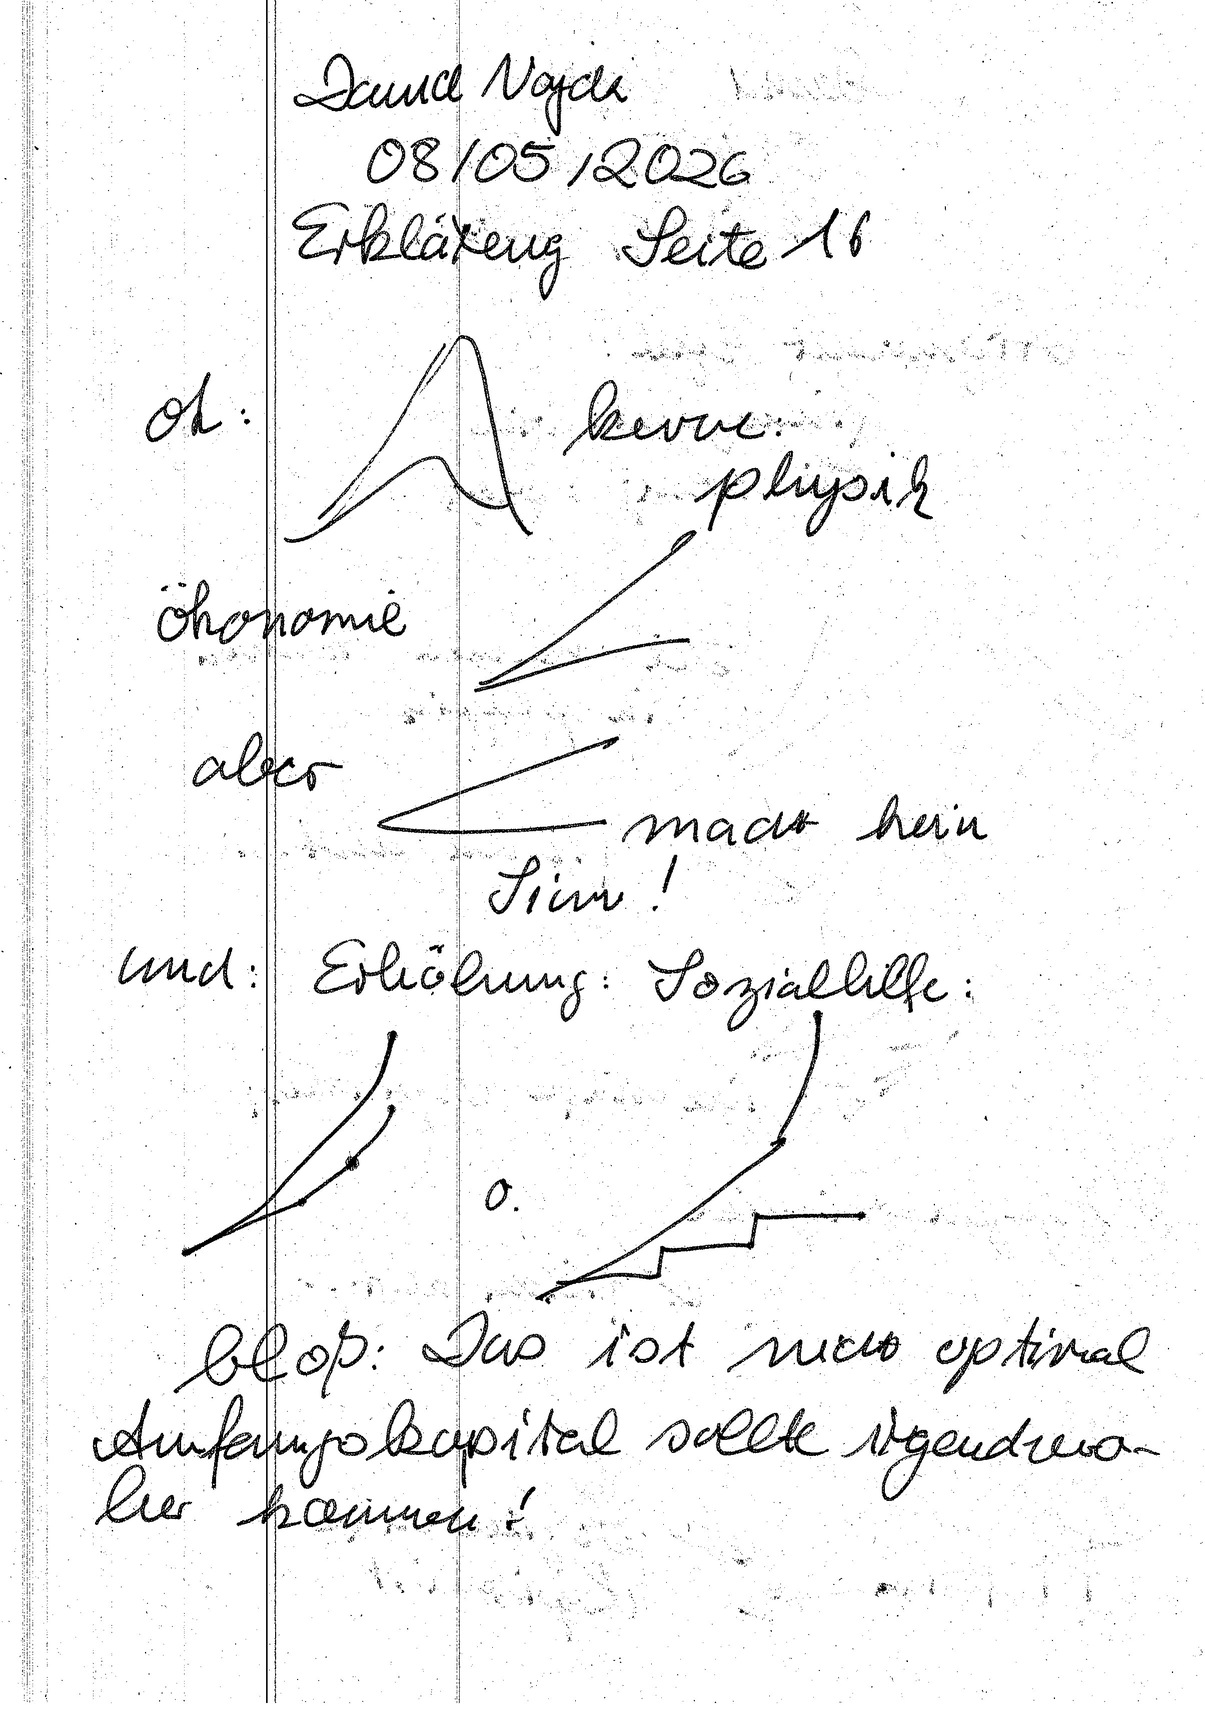 David Vajda
08/05/2026
Erkläreng Seite 16
oh: kevve:
physik
ökonomie
aber
macht kein
Sinn!
und: Erhöhung: Sozialhilfe:
o.
bloß: Das ist nicht optimal
Anfangskapital sollte irgendwo-
her kommen!